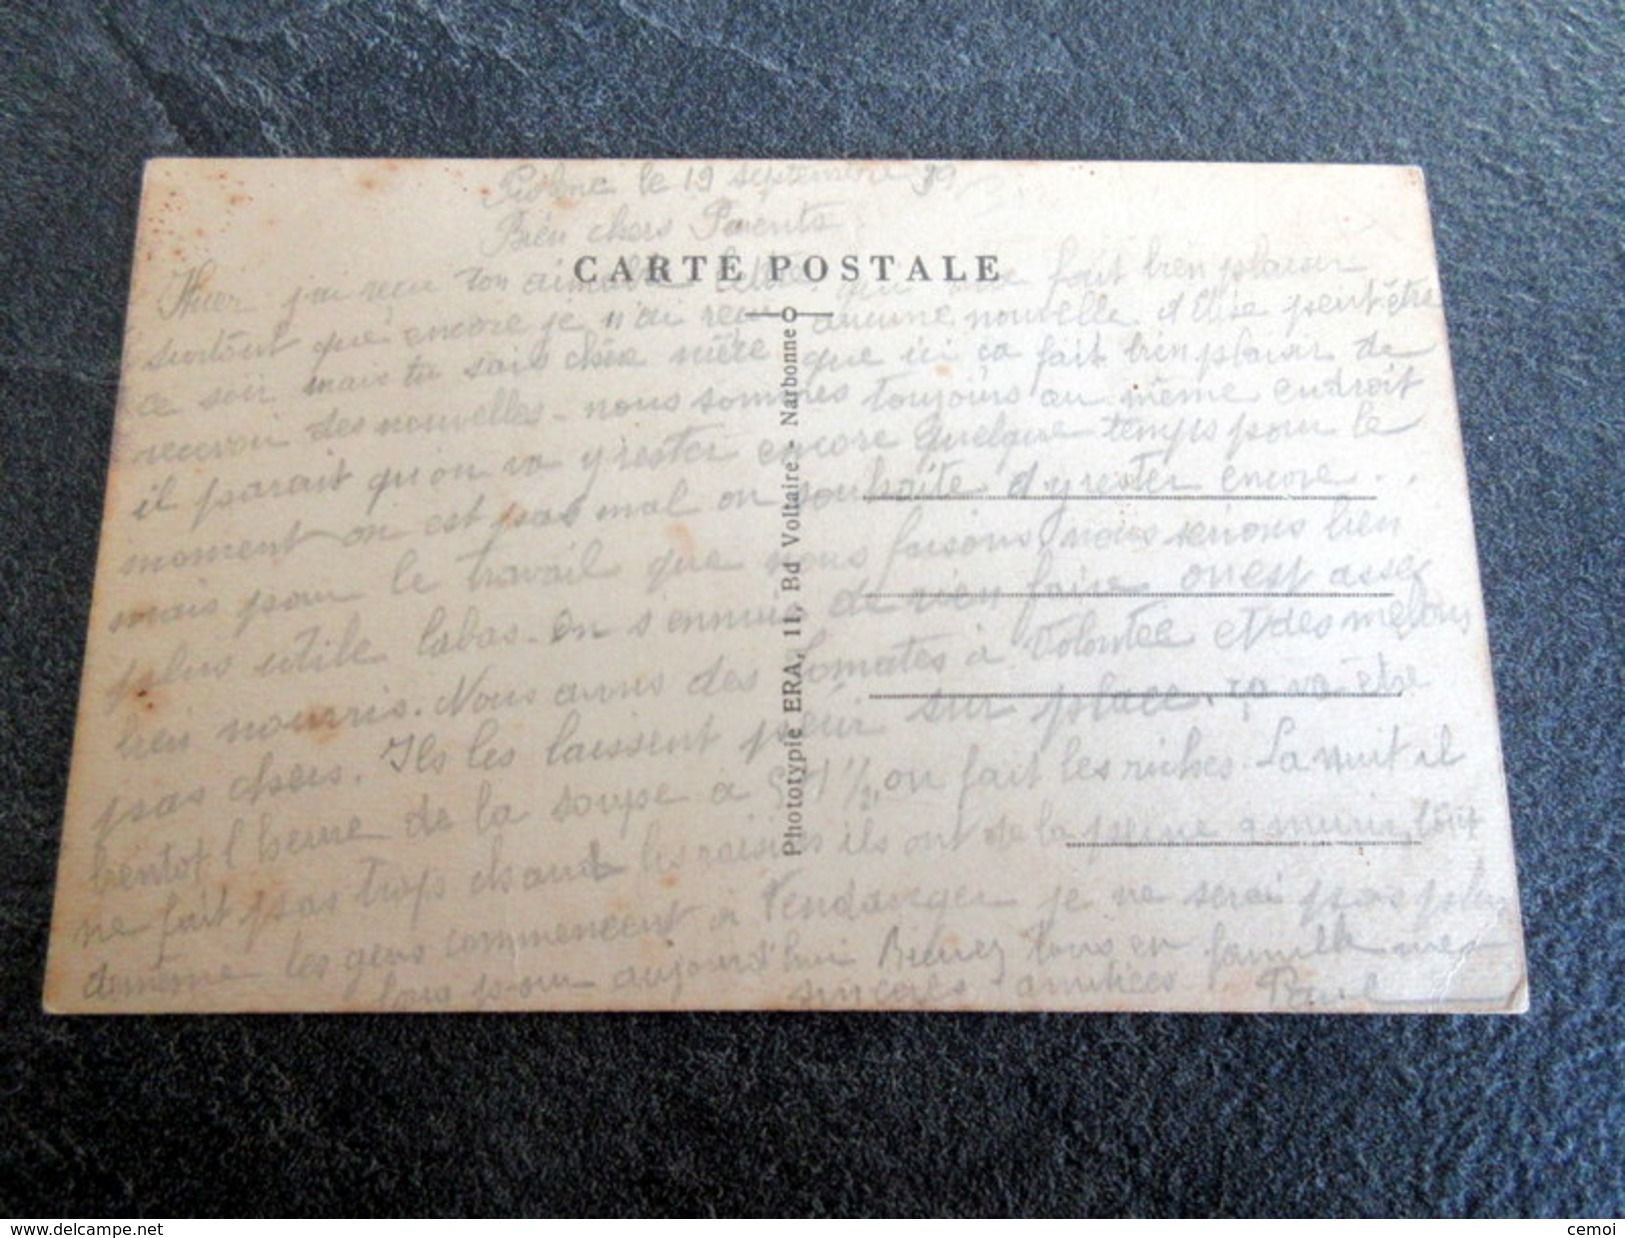 Piolenc le 19 septembre 39
Bien chers Parents
CARTE POSTALE
Hier j'ai reçu ton aimable lettre qui me fait bien plaisir
surtout que encore je n'ai reçu aucune nouvelle d'Elise peut-être
ce soir mais tu sais chère mère que ici ça fait bien plaisir de
recevoir des nouvelles - nous sommes toujours au même endroit
il parait qu'on va y rester encore quelque temps pour le
moment on est pas mal on souhaite d'y rester encore..
mais pour le travail que nous faisons nous serions bien
plus utile labas. on s'ennuie de rien faire on est assez
bien nourris. Nous avons des tomates à volontée et des melons
pas chers. Ils les laissent pourir sur place. ça va être
bientot l'heure de la soupe à 1/2 on fait les riches. La nuit il
ne fait pas trop chaud les raisins ils ont de la peine a murir, tout
de même les gens commencent à Vendanger je ne serai pas plus
lous pour aujourd'hui Recevez tous en famille mes
sincères amitiées. Paul
Phototypie ERA, 11, Bd Voltaire - Narbonne
delcampe.net
cemoi